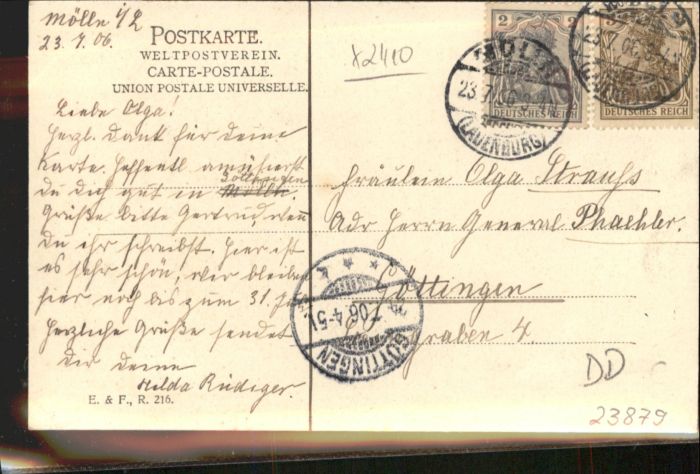 Mölle i/L
23.7.06.
POSTKARTE.
WELTPOSTVEREIN.
CARTE-POSTALE.
UNION POSTALE UNIVERSELLE.
X2410
2
2
3
DEUTSCHES REICH
DEUTSCHES REICH
MÖLLN
23.7.06.
(LAUENBURG)
Liebe Olga!
Herzl. Dank für deine
Karte. Hoffentl. amüsierst
du dich gut in Göttingen Mölln.
Grüße bitte Gertrud, wenn
du ihr schreibst. Hier ist
es sehr schön, wir bleiben
hier noch bis zum 31.
Herzliche Grüße sendet
dir deine
Hilda Rüdiger.
E. & F., R. 216.
Fräulein Olga Strauss
Adr Herrn General
Göttingen
graben 4.
7.06.4-5V.
GÖTTINGEN
DD
23879